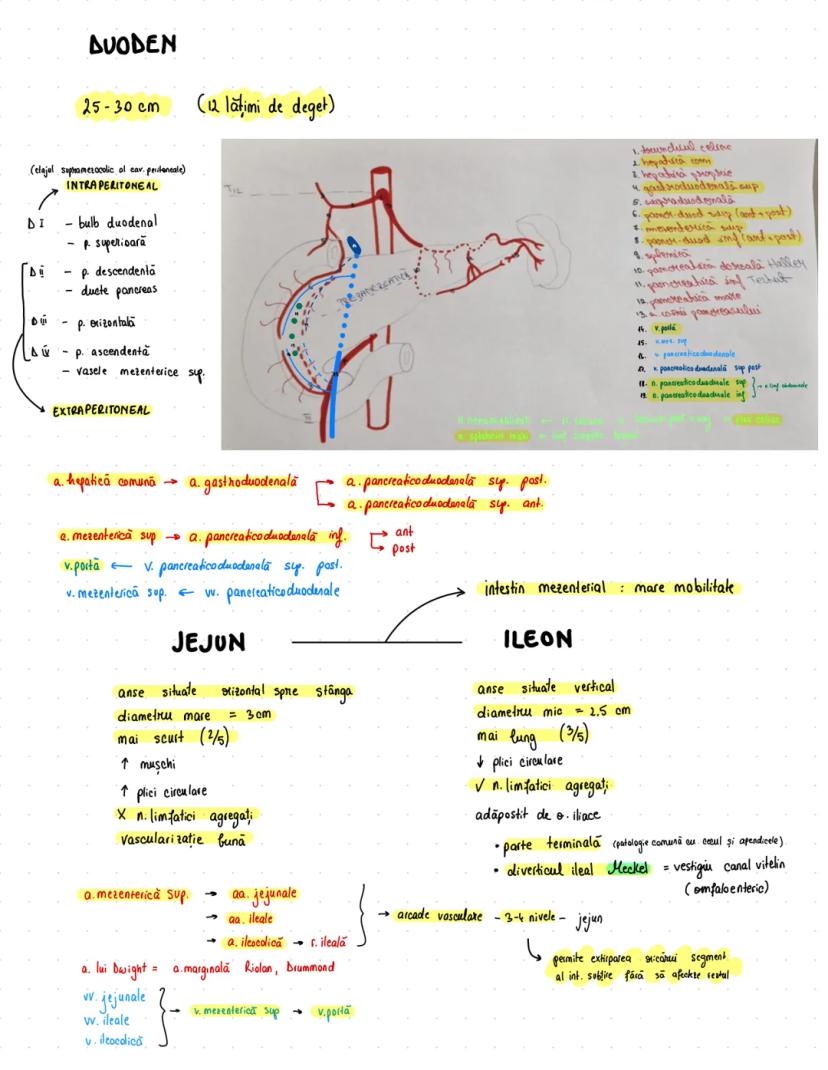 DUODEN
25-30 cm (12 lățimi de deget)
(etajul supramezocolic al cav. peritoneale)
INTRAPERITONEAL
D I - bulb duodenal
- p. superioară
D ii - p. descendentă
- ducte pancreas
D iii - p. orizontală
D iv - p. ascendentă
- vasele mezenterice sup.
EXTRAPERITONEAL
T12
III
1. trunchiul celiac
2. hepatică com
3. hepatică proprie
4. gastroduodenală sup
5. supraduodenală
6. pancr-duod sup (ant + post)
7. mezenterică sup
8. pancr-duod inf (ant + post)
9. splenică
10. pancreatică dorsală Haller
11. pancreatică inf Testut
12. pancreatică mare
13. a. cozii pancreasului
14. v. portă
15. v. mez. sup
16. v. pancreaticoduodenale
17. v. pancreaticoduodenală sup post
18. n. pancreaticoduodenale sup
19. n. pancreaticoduodenale inf
a. hepatică comună → a. gastroduodenală → a. pancreaticoduodenală sup. post.
→ a. pancreaticoduodenală sup. ant.
a. mezenterică sup → a. pancreaticoduodenală inf. → ant
→ post
v. portă ← v. pancreaticoduodenală sup. post.
v. mezenterică sup. ← vv. pancreaticoduodenale
intestin mezenterial : mare mobilitate
JEJUN
anse situate orizontal spre stânga
diametru mare = 3cm
mai scurt (2/5)
↑ mușchi
↑ plici circulare
X n. limfatici agregați
vascularizație bună
ILEON
anse situate vertical
diametru mic = 2,5 cm
mai lung (3/5)
↓ plici circulare
√ n. limfatici agregați
adăpostit de o. iliace
• parte terminală (patologie comună cu cecul și apendicele)
• diverticul ileal Meckel = vestigiu canal vitelin
(omfaloenteric)
a. mezenterică sup. → aa. jejunale
→ aa. ileale
→ a. ileocolică → r. ileală
→ arcade vasculare - 3-4 nivele - jejun
permite extirparea oricărui segment
al int. subțire fără să afecteze restul
a. lui Dwight = a. marginală Riolan, Drummond
vv. jejunale
vv. ileale
v. ileocolică
→ v. mezenterică sup → v. portă